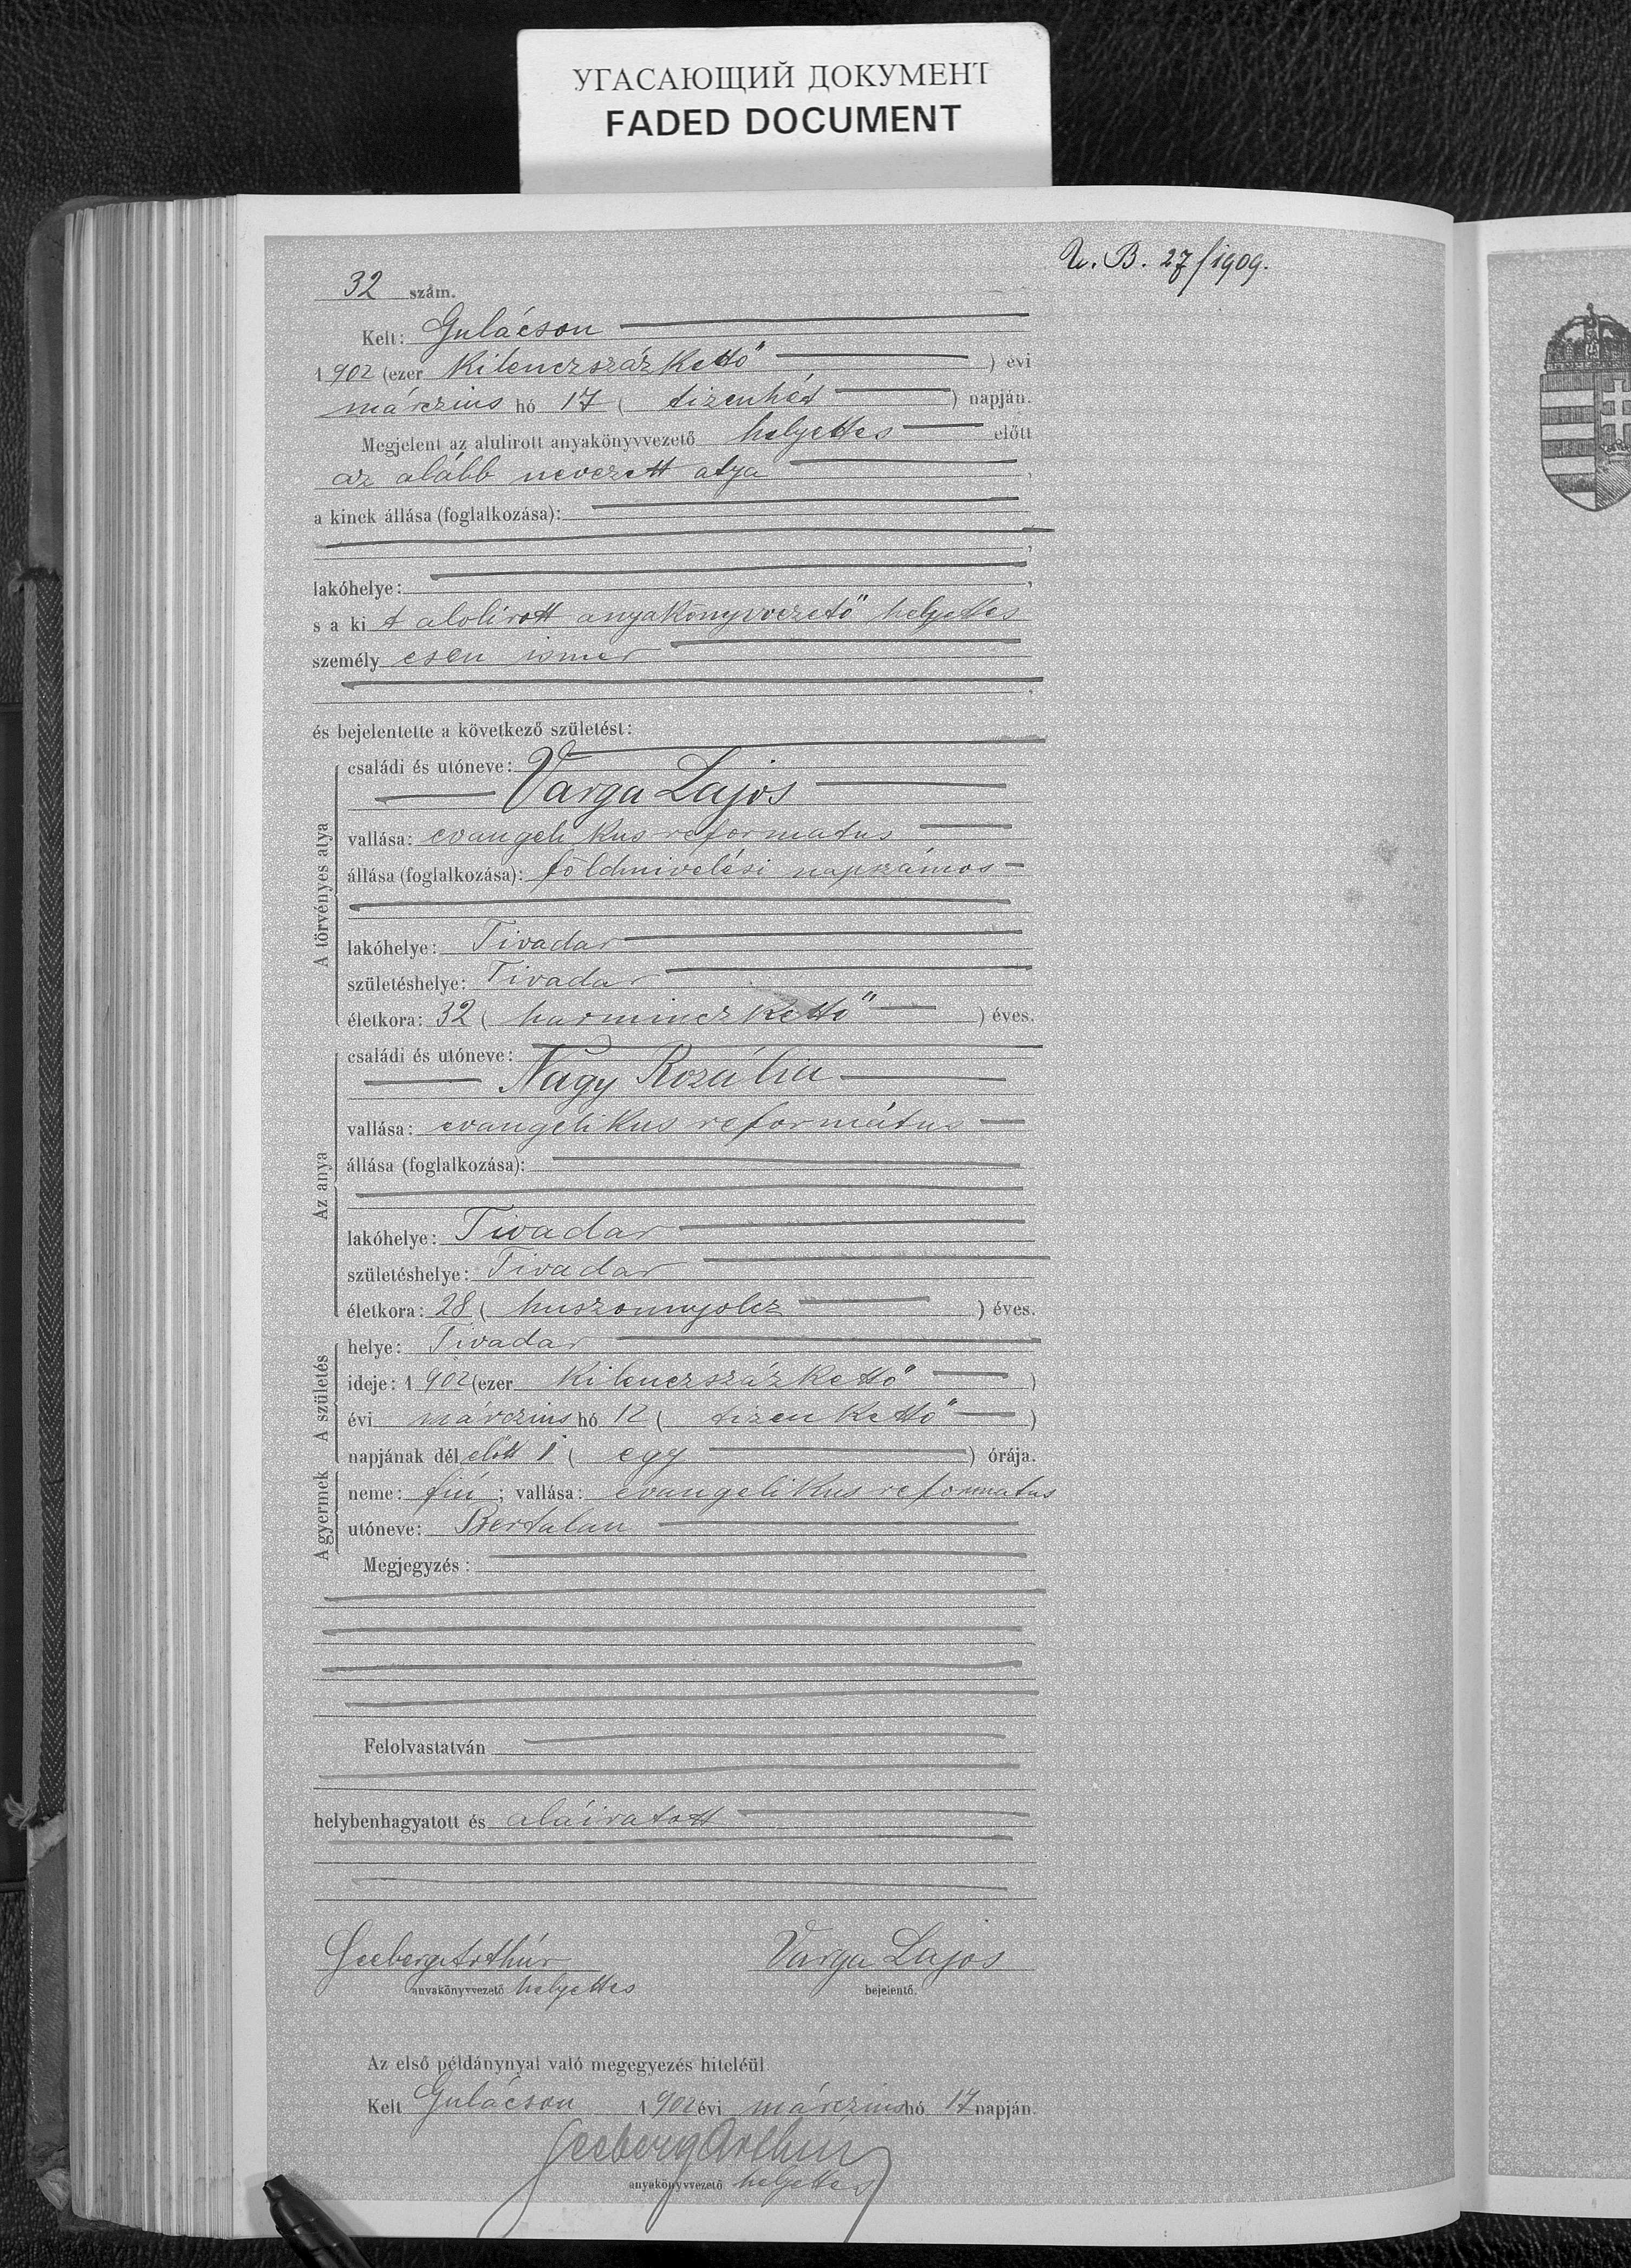 УГАСАЮЩИЙ ДОКУМЕНТ
FADED DOCUMENT
U. B. 27/1909.
32 szám.
Kelt: Gulácson
1902 (ezer kilenczszázkettő) évi
márczius hó 17 (tizenhét) napján.
Megjelent az alulirott anyakönyvvezető helyettes előtt
az alább nevezett atya,
a kinek állása (foglalkozása):
lakóhelye:
s a kit alolirott anyakönyvvezető helyettes
személyesen ismer
és bejelentette a következő születést:
A törvényes atya
családi és utóneve:
Varga Lajos
vallása: evangelikus reformatus
állása (foglalkozása): földmivelési napszámos
lakóhelye: Tivadar
születéshelye: Tivadar
életkora: 32 (harminczkettő) éves.
Az anya
családi és utóneve:
Nagy Rozália
vallása: evangelikus református
állása (foglalkozása):
lakóhelye: Tivadar
születéshelye: Tivadar
életkora: 28 (huszonnyolcz) éves.
A születés
helye: Tivadar
ideje: 1902 (ezer kilenczszázkettő)
évi márczius hó 12 (tizenkettő)
napjának délelőtt 1 (egy) órája.
A gyermek
neme: fiú; vallása: evangelikus reformatus
utóneve: Bertalan
Megjegyzés:
Felolvastatván
helybenhagyatott és aláiratott
Seeberg Arthúr Varga Lajos
anyakönyvvezető helyettes bejelentő.
Az első példánynyal való megegyezés hiteléül
Kelt Gulácson 1902 évi márczius hó 17 napján.
Seeberg Arthur
anyakönyvvezető helyettes